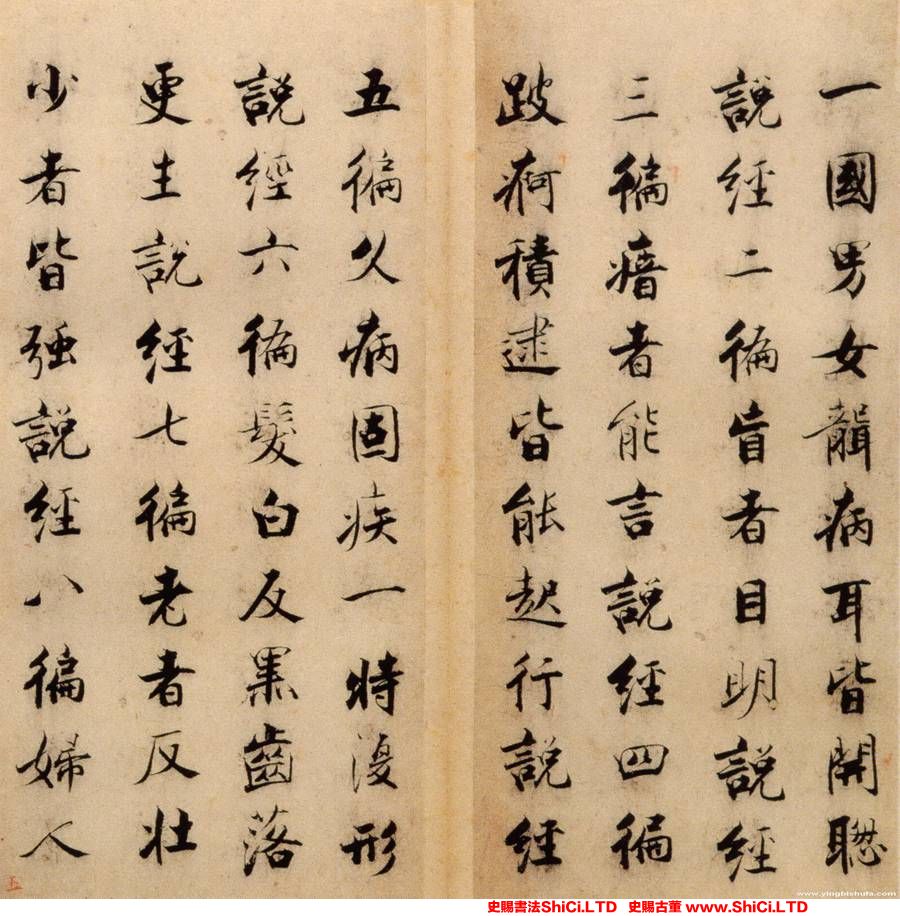 一國男女聾病耳皆開聰
說經二徧盲者目明說經
三徧瘖者能言說經四徧
跛痾積逮皆能起行說經
五徧久病固疾一時復形
說經六徧髮白反黑齒落
更生說經七徧老者反壯
少者皆強說經八徧婦人
五
www.yingbishufa.com
史賜書法ShiCi.LTD 史賜古董 www.ShiCi.LTD